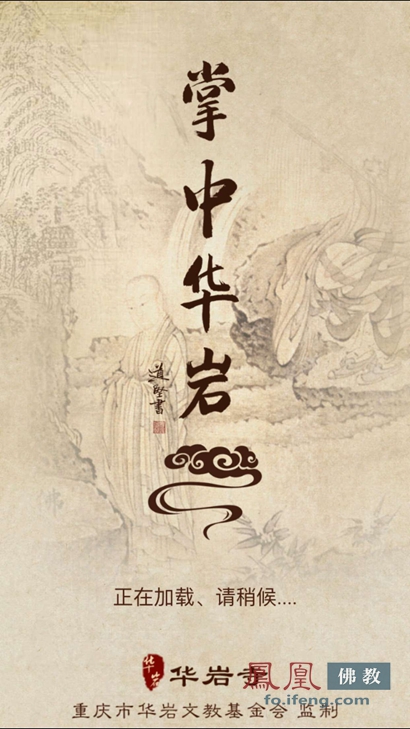 掌中华岩
道坚书
正在加载、请稍候....
华岩
华岩寺
凤凰佛教
fo.ifeng.com
重庆市华岩文教基金会 监制